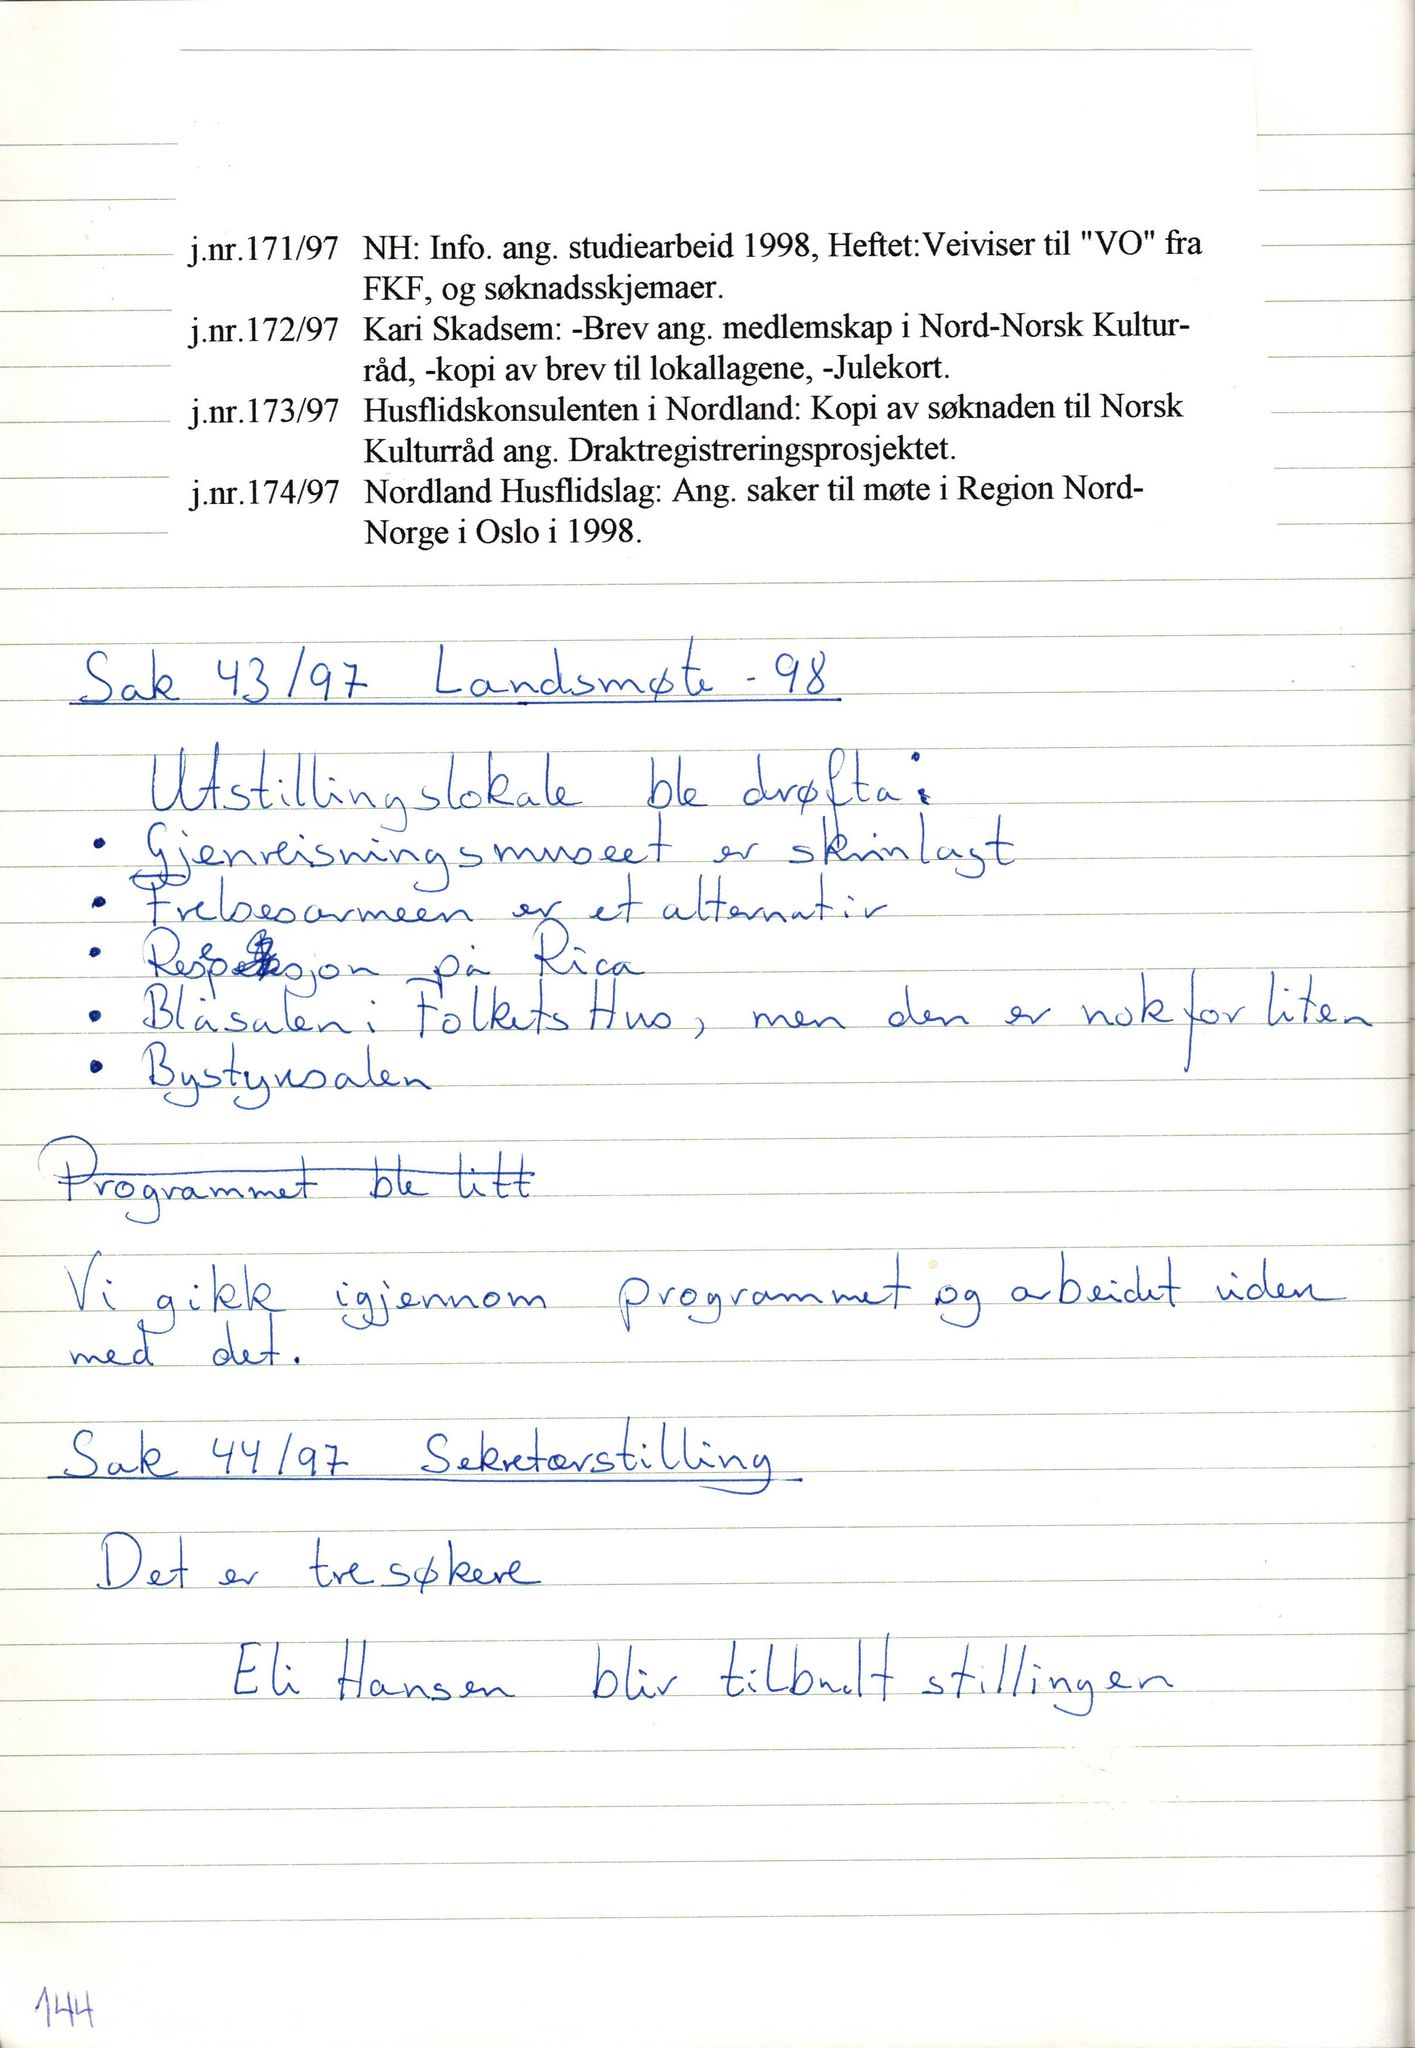 j.nr.171/97 NH: Info. ang. studiearbeid 1998, Heftet:Veiviser til "VO" fra
FKF, og søknadsskjemaer.
j.nr.172/97 Kari Skadsem: -Brev ang. medlemskap i Nord-Norsk Kultur-
råd, -kopi av brev til lokallagene, -Julekort.
j.nr.173/97 Husflidskonsulenten i Nordland: Kopi av søknaden til Norsk
Kulturråd ang. Draktregistreringsprosjektet.
j.nr.174/97 Nordland Husflidslag: Ang. saker til møte i Region Nord-
Norge i Oslo i 1998.
Sak 43/97 Landsmøte - 98
Utstillingslokale ble drøfta:
• Gjenreisningsmuseet er skrinlagt
• Frelsesarmeen er et alternativ
• på Rica
• Blåsalen i Folkets Hus, men den er nok for liten
• Bystyresalen
Programmet ble litt
Vi gikk igjennom programmet og arbeidet viden
med det.
Sak 44/97 Sekretærstilling
Det er tre søkere
Eli Hansen blir tilbudt stillingen
144